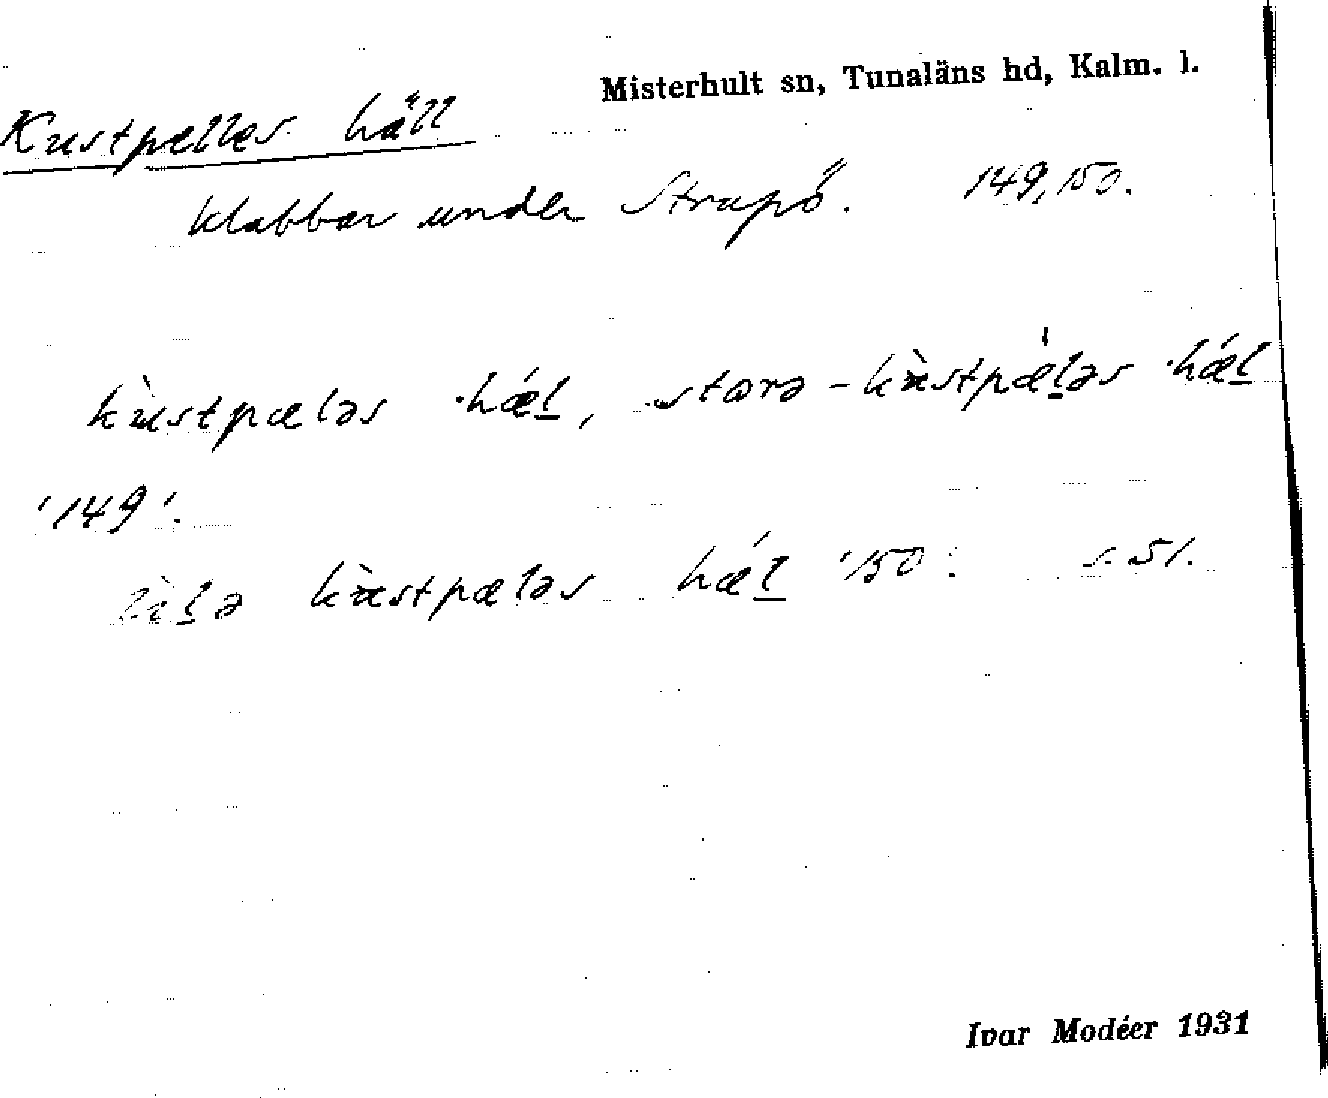 Misterhult sn, Tunaläns hd, Kalm. l.
Kustpelles häll
klabbar under Strupö. 149, 150.
kùstpæləs ·hǽl, storə-kùstpæ̀ləs ·hǽl
'149'.
lìlə kùstpæləs hǽl '150'. s. 51.
Ivar Modéer 1931